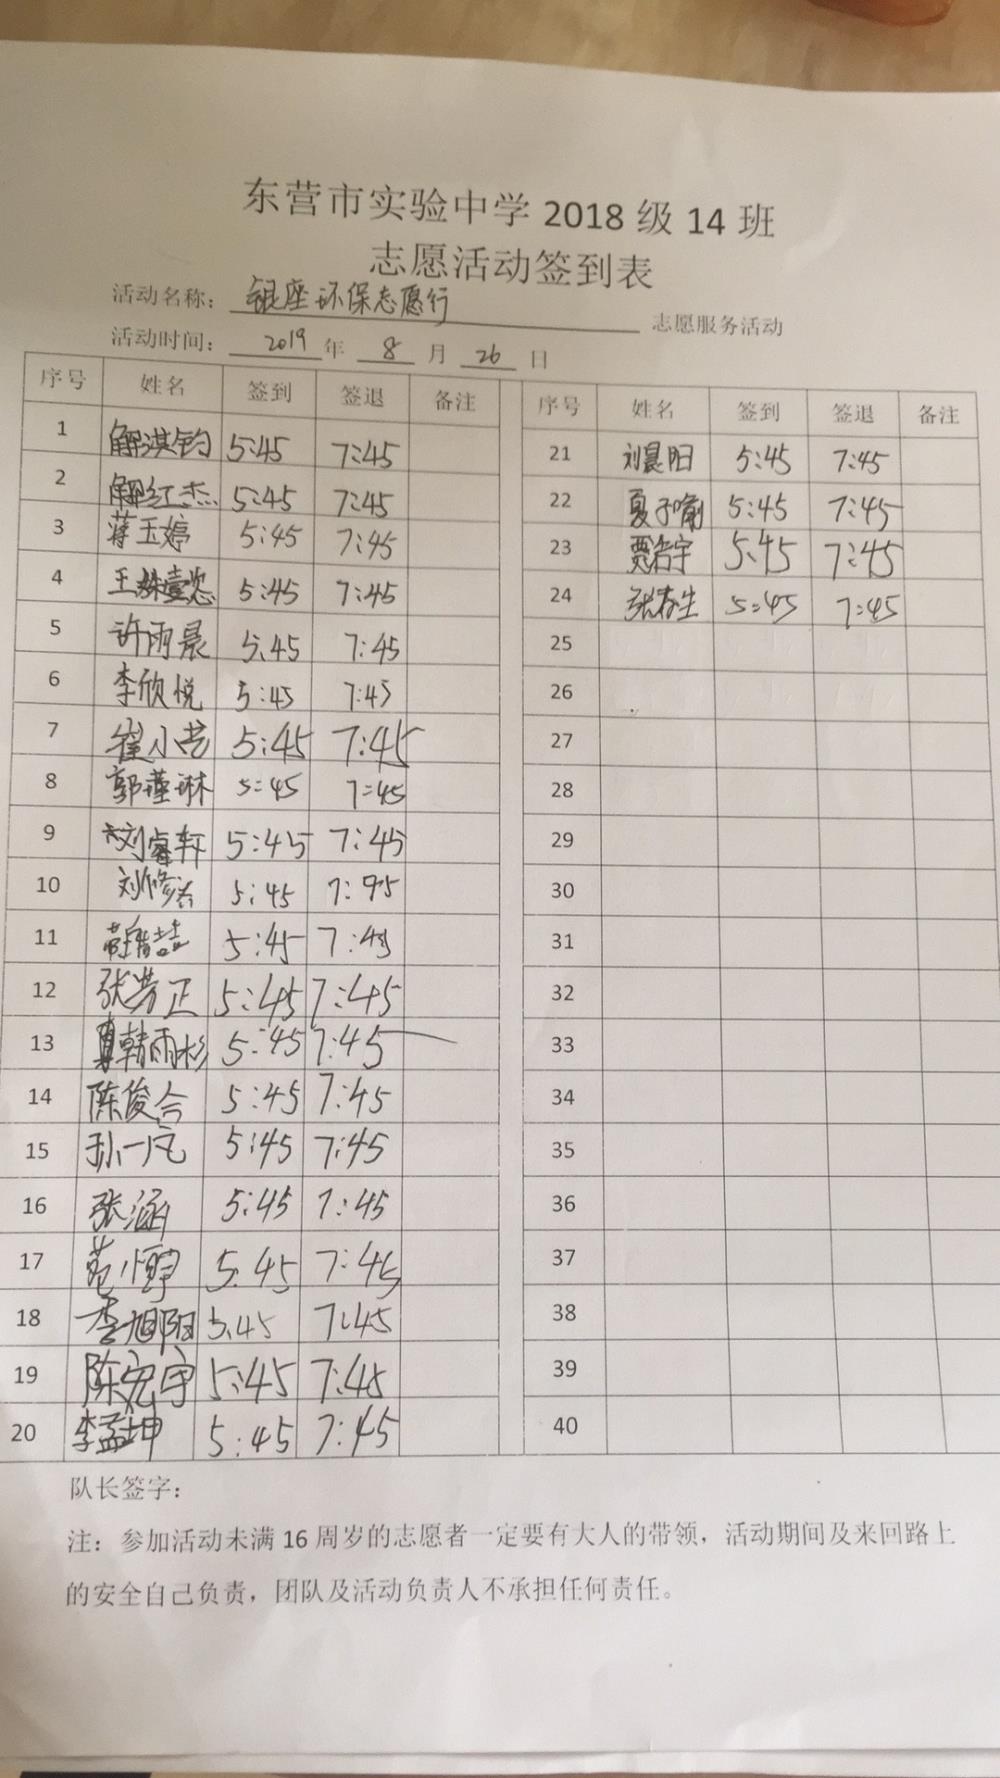 东营市实验中学 2018 级 14 班
志愿活动签到表
活动名称： 银座环保志愿行 志愿服务活动
活动时间： 2019 年 8 月 26 日
序号 姓名 签到 签退 备注 序号 姓名 签到 签退 备注
1 解淇钧 5:45 7:45 21 刘晨阳 5:45 7:45
2 解红杰 5:45 7:45 22 夏子喻 5:45 7:45
3 蒋玉婷 5:45 7:45 23 贾若宇 5:45 7:45
4 王姝壹 5:45 7:45 24 张春生 5:45 7:45
5 许雨晨 5:45 7:45 25
6 李欣悦 5:45 7:45 26
7 崔小艺 5:45 7:45 27
8 郭瑾琳 5:45 7:45 28
9 刘睿轩 5:45 7:45 29
10 刘修 5:45 7:45 30
11 5:45 7:45 31
12 张芳正 5:45 7:45 32
13 韩雨杉 5:45 7:45 33
14 陈俊合 5:45 7:45 34
15 孙一凡 5:45 7:45 35
16 张涵 5:45 7:45 36
17 范 5:45 7:45 37
18 李旭阳 5:45 7:45 38
19 陈宏宇 5:45 7:45 39
20 李孟坤 5:45 7:45 40
队长签字：
注：参加活动未满 16 周岁的志愿者一定要有大人的带领，活动期间及来回路上
的安全自己负责，团队及活动负责人不承担任何责任。